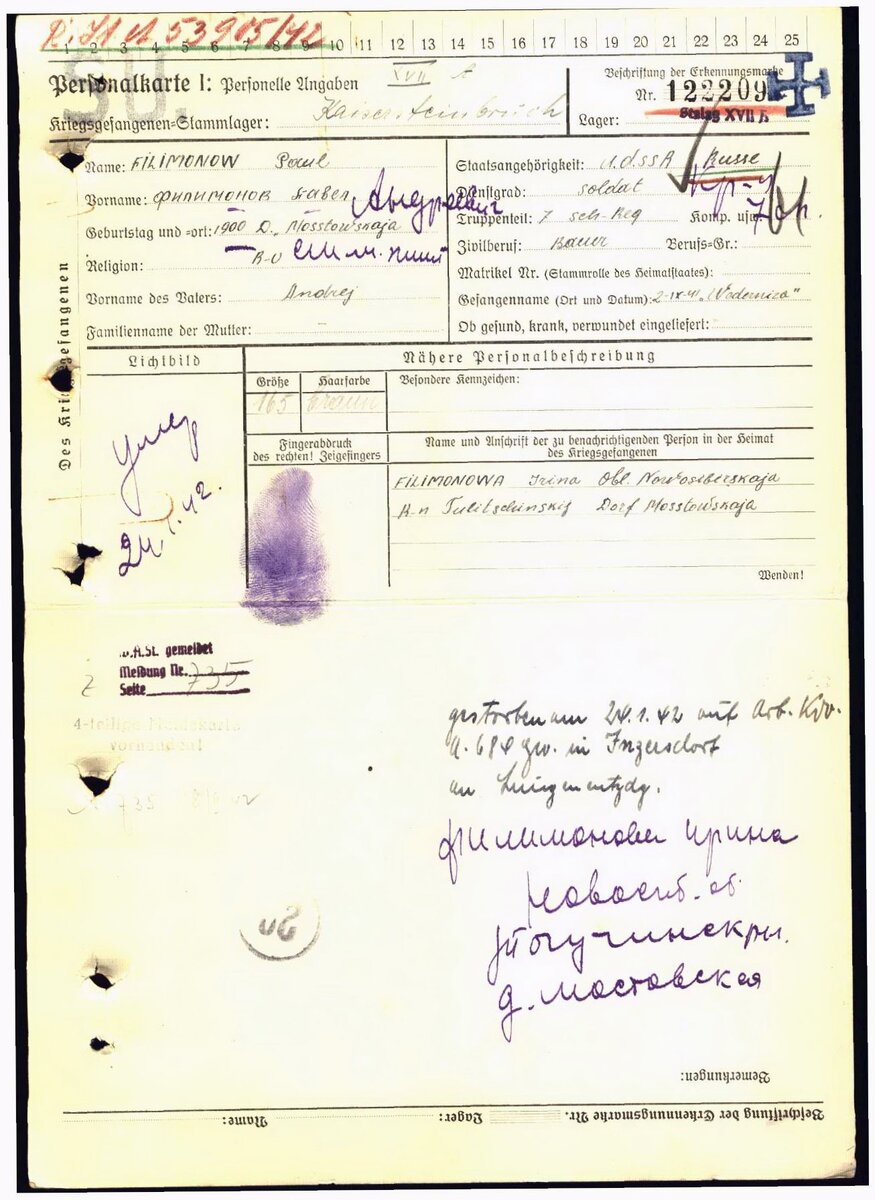 R: 31 A 53905/42
1 2 3 4 5 6 7 8 9 10 11 12 13 14 15 16 17 18 19 20 21 22 23 24 25
SU.
Personalkarte I: Personelle Angaben
XVII A
Kriegsgefangenen-Stammlager: Kaisersteinbruch
Beschriftung der Erkennungsmarke
Nr. 122209
Lager: Stalag XVII A
Des Kriegsgefangenen
Name: FILIMONOW Paul
Vorname: ФИЛИМОНОВ Павел Андреевич
Geburtstag und =ort: 1900 D. Mosstowskaja
Religion: R-O
Vorname des Vaters: Andrej
Familienname der Mutter: -
Staatsangehörigkeit: U.d.S.S.R Russe
Dienstgrad: soldat кр-ц
Truppenteil: 7 sch-Reg Komp. usw.
Zivilberuf: Bauer Berufs=Gr.:
Matrikel Nr. (Stammrolle des Heimatstaates):
Gefangenname (Ort und Datum): 2-IX-41
Ob gesund, krank, verwundet eingeliefert:
Lichtbild
умер
24.1.42.
Nähere Personalbeschreibung
Größe
165
Haarfarbe
braun
Besondere Kennzeichen:
Fingerabdruck
des rechten! Zeigefingers
Name und Anschrift der zu benachrichtigenden Person in der Heimat
des Kriegsgefangenen
FILIMONOWA Irina Obl. Nowosiberskaja
R-n Tulitschinskij Dorf Mosstowskaja
Wenden!
W.A.St. gemeldet
Meldung Nr. 735
Seite
gestorben am 24.1.42 auf Arb. Kdo.
A. 684 gw. in Inzersdorf
an Lungenentzdg.
Филимонова Ирина
Новосиб. об
Тогучинскрн.
д. Мостовская
Bemerkungen:
Beschriftung der Erkennungsmarke Nr. Lager: Name: